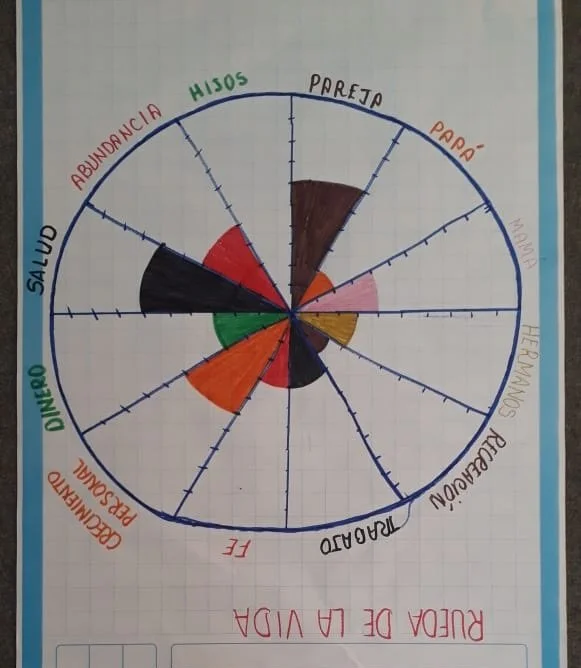 RUEDA DE LA VIDA
PAREJA
PAPÁ
MAMÁ
HERMANOS
RECREACIÓN
TRABAJO
FE
CRECIMIENTO
PERSONAL
DINERO
SALUD
ABUNDANCIA
HIJOS